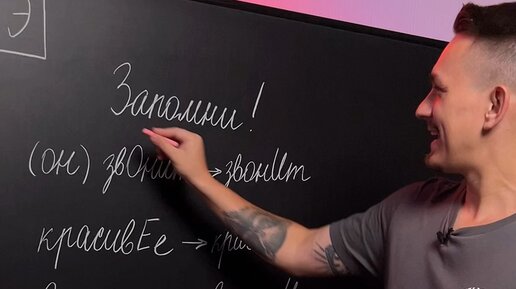 Э
Запомни!
(он) звОнит → звонИт
красивЕе →